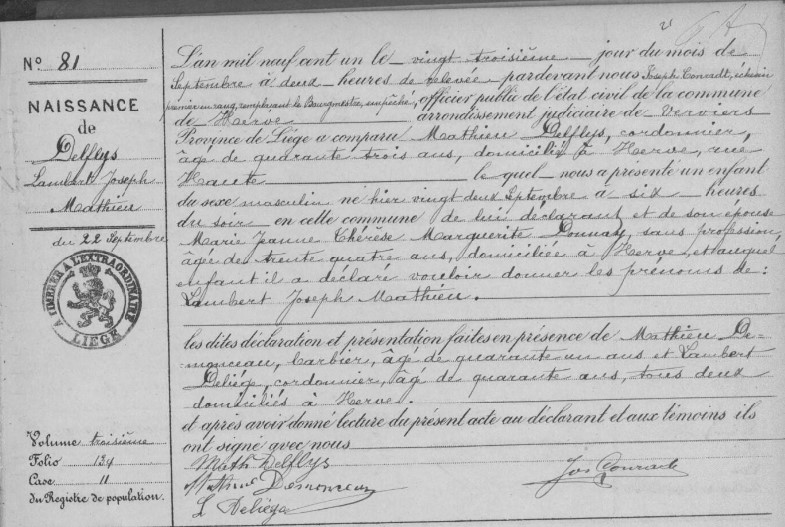 N° 81
NAISSANCE
de
Delflys
Lambert Joseph
Mathieu
du 22 Septembre
TIMBRE A L'EXTRAORDINAIRE
LIEGE
Volume troisième
Folio 134
Case 11
du Registre de population.
L'an mil neuf cent un le vingt troisième jour du mois de
Septembre à deux heures de relevée pardevant nous Joseph Conradt, échevin
premier en rang, remplaçant le Bourgmestre, empêché, officier public de l'état civil de la commune
de Herve arrondissement judiciaire de Verviers
Province de Liège a comparu Mathieu Delflys, cordonnier,
âgé de quarante trois ans, domicilié à Herve, rue
Haute le quel nous a présenté un enfant
du sexe masculin né hier vingt deux Septembre à six heures
du soir en cette commune de lui déclarant et de son épouse
Marie Jeanne Thérèse Marguerite Donnay, sans profession,
âgée de trente quatre ans, domiciliée à Herve, et auquel
enfant il a déclaré vouloir donner les prénoms de:
Lambert Joseph Mathieu.
les dites déclaration et présentation faites en présence de Mathieu De-
monceau, barbier, âgé de quarante un ans et Lambert
Deliège, cordonnier, âgé de quarante ans, tous deux
domiciliés à Herve.
et après avoir donné lecture du présent acte au déclarant et aux témoins ils
ont signé avec nous
Math Delflys
Mathieu Demonceau
L Deliège
Jos Conradt